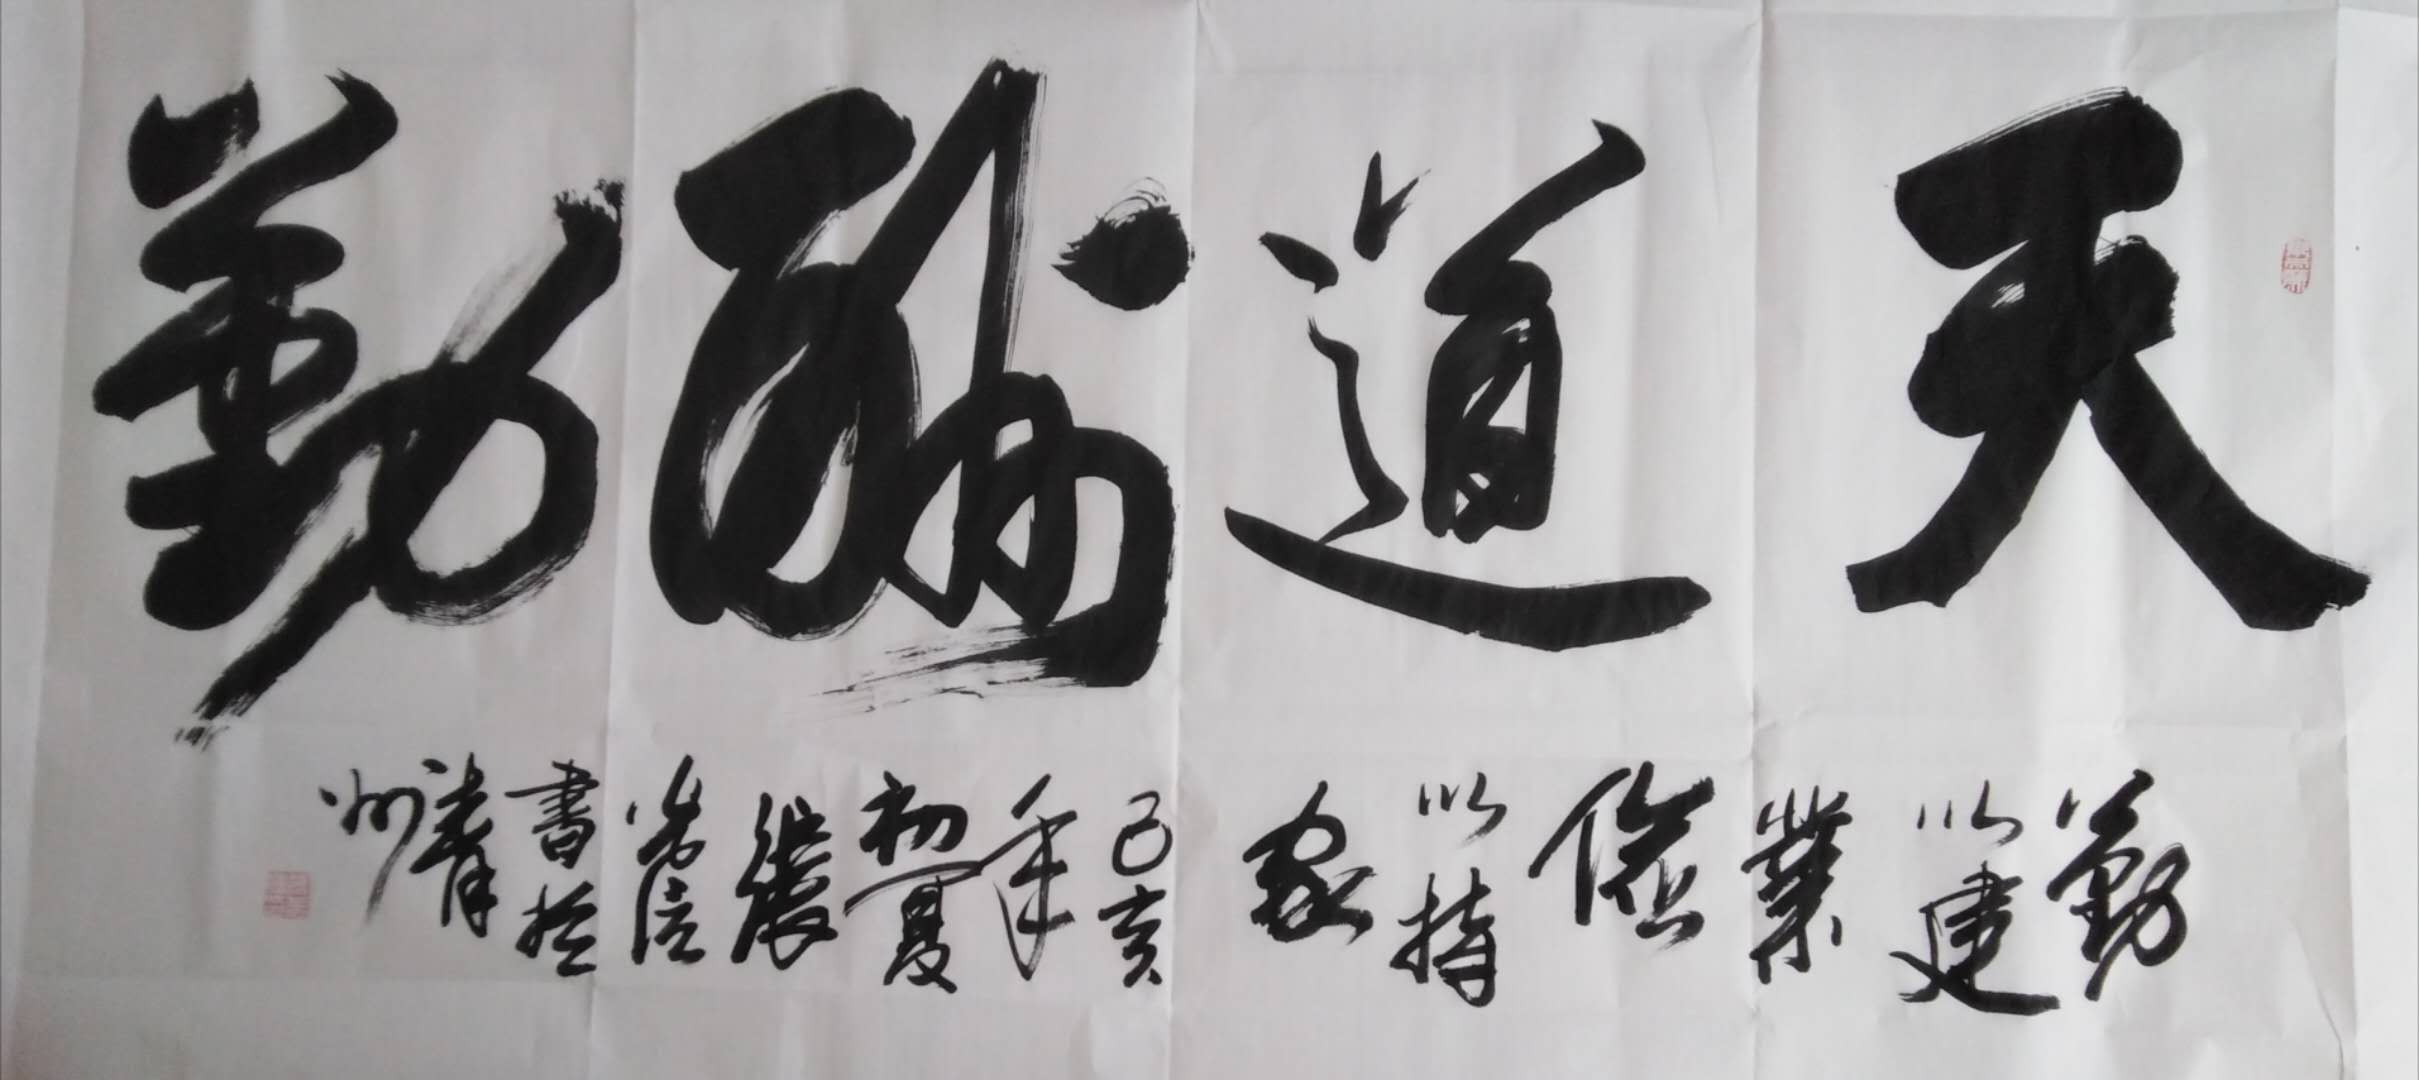 天道酬勤
勤以建業儉以持家
己亥年初夏張 信書於青州